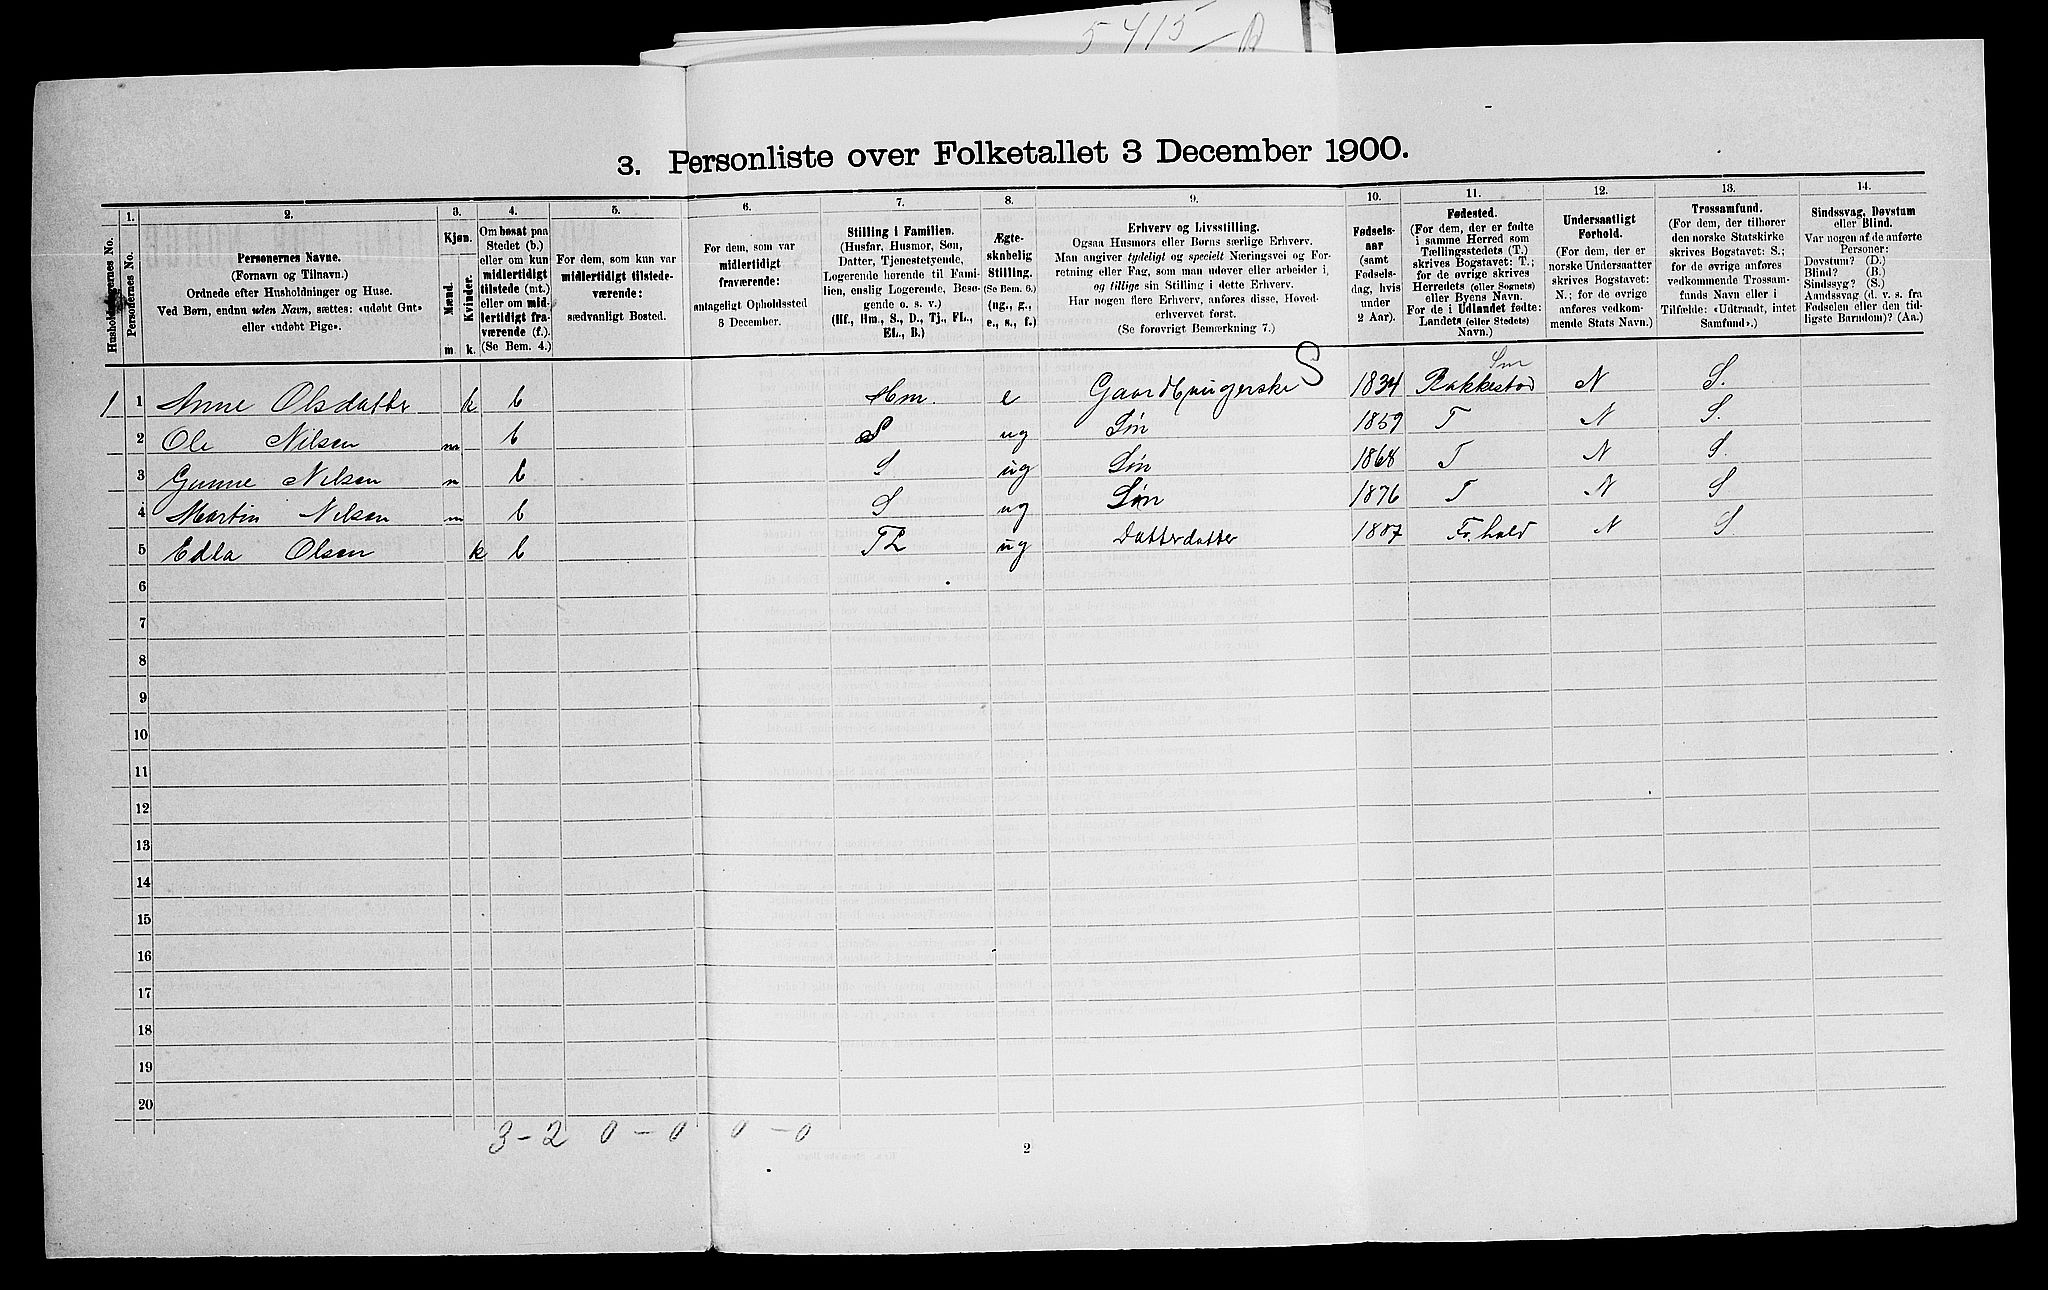 5415-
3. Personliste over Folketallet 3 December 1900.
1. 2. 3. 4. 5. 6. 7. 8. 9. 10. 11. 12. 13. 14.
Husholdningernes No.
Personernes No.
Personernes Navne.
(Fornavn og Tilnavn.)
Ordnede efter Husholdninger og Huse.
Ved Børn, endnu uden Navn, sættes: «udøbt Gut»
eller «udøbt Pige».
Kjøn.
Mænd.
Kvinder.
m. k.
Om bosat paa
Stedet (b.)
eller om kun
midlertidigt
tilstede (mt.)
eller om mid-
lertidigt fra-
værende (f.).
(Se Bem. 4.)
For dem, som kun var
midlertidigt tilstede-
værende:
sædvanligt Bosted.
For dem, som var
midlertidigt
fraværende:
antageligt Opholdssted
3 December.
Stilling i Familien.
(Husfar, Husmor, Søn,
Datter, Tjenestetyende,
Logerende hørende til Fami-
lien, enslig Logerende, Besø-
gende o. s. v.)
(Hf., Hm., S., D., Tj., FL.,
EL., B.)
Ægte-
skabelig
Stilling.
(Se Bem. 6.)
(ug., g.,
e., s., f.)
Erhverv og Livsstilling.
Ogsaa Husmors eller Børns særlige Erhverv.
Man angiver tydeligt og specielt Næringsvei og For-
retning eller Fag, som man udøver eller arbeider i,
og tillige sin Stilling i dette Erhverv.
Har nogen flere Erhverv, anføres disse, Hoved-
erhvervet først.
(Se forøvrigt Bemærkning 7.)
Fødsels-
aar
(samt
Fødsels-
dag, hvis
under
2 Aar).
Fødested.
(For dem, der er fødte
i samme Herred som
Tællingsstedets (T.)
skrives Bogstavet: T.;
for de øvrige skrives
Herredets (eller Sognets)
eller Byens Navn.
For de i Udlandet fødte:
Landets (eller Stedets)
Navn.)
Undersaatligt
Forhold.
(For dem, der er
norske Undersaatter
skrives Bogstavet:
N.; for de øvrige
anføres vedkom-
mende Stats Navn.)
Trossamfund.
(For dem, der tilhører
den norske Statskirke
skrives Bogstavet: S.;
for de øvrige anføres
vedkommende Trossam-
funds Navn eller i
Tilfælde: «Udtraadt, intet
Samfund».)
Sindssvag, Døvstum
eller Blind.
Var nogen af de anførte
Personer:
Døvstum? (D.)
Blind? (B.)
Sindssyg? (S.)
Aandssvag (d. v. s. fra
Fødselen eller den tid-
ligste Barndom)? (Aa.)
1 1 Anne Olsdatter k b Hm. e S 1834 Rakkestad N S.
2 Ole Nilsen m b S ug Søn 1859 T N S.
3 Gunne Nilsen m b S ug Søn 1868 T N S.
4 Martin Nilsen m b S ug Søn 1876 T N S
5 Edla Olsen k b FL ug Datterdatter 1887 Fr.hald N S.
6
7
8
9
10
11
12
13
14
15
16
17
18
19
20
3-2 0-0 0-0
2